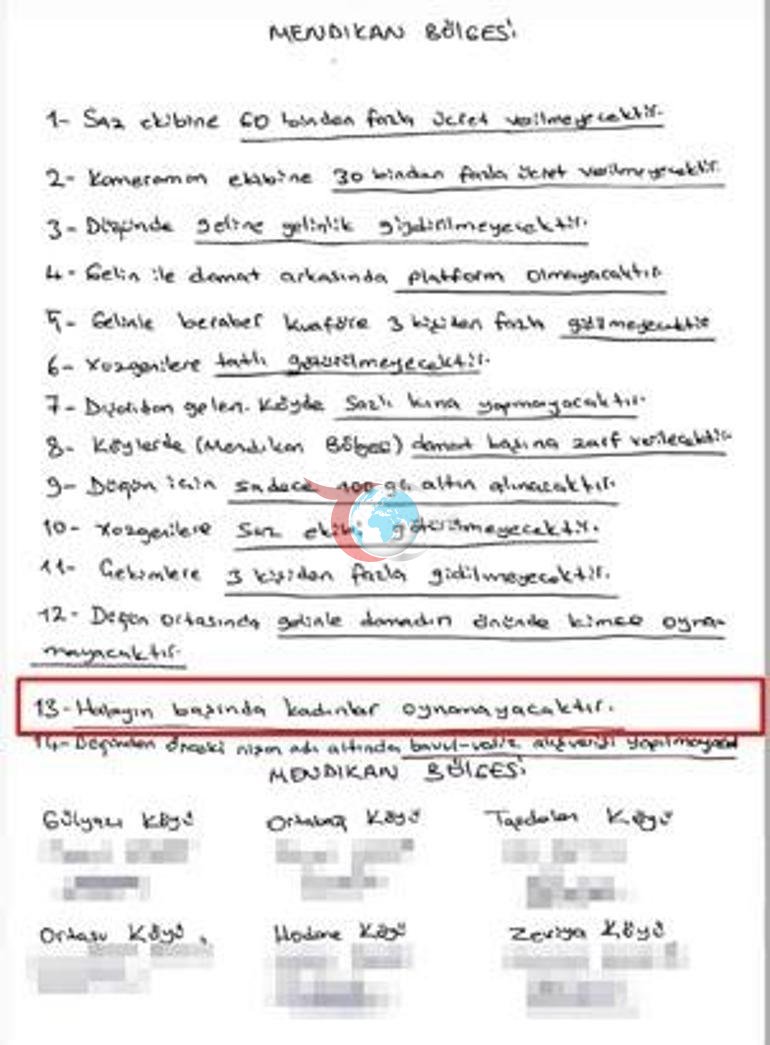 MENDIKAN BÖLGESİ
1- Saz ekibine 60 binden fazla ücret verilmeyecektir.
2- Kameraman ekibine 30 binden fazla ücret verilmeyecektir.
3- Düğünde geline gelinlik giydirilmeyecektir.
4- Gelin ile damat arkasında platform olmayacaktır
5- Gelinle beraber kuaföre 3 kişiden fazla gidilmeyecektir
6- Xozgenilere tatlı götürülmeyecektir.
7- gelen. Köyde Sazlı kına yapmayacaktır.
8- Köylerde (Mendikan Bölgesi) damat başına zarf verilecektir
9- Düğün için sadece 100 gr altın alınacaktır.
10- Xozgenilere Saz ekibi götürülmeyecektir.
11- Çekimlere 3 kişiden fazla gidilmeyecektir.
12- Düğün ortasında gelinle damadın önünde kimse oyna-
mayacaktır.
13- Halayın başında kadınlar oynamayacaktır.
14- Düğünden önceki nişan adı altında bavul-valiz alışverişi
MENDIKAN BÖLGESİ
Gülyazı Köyü Ortabağ Köyü Taşdelen Köyü
Ortasu Köyü, Hodme Köyü Zeviya Köyü